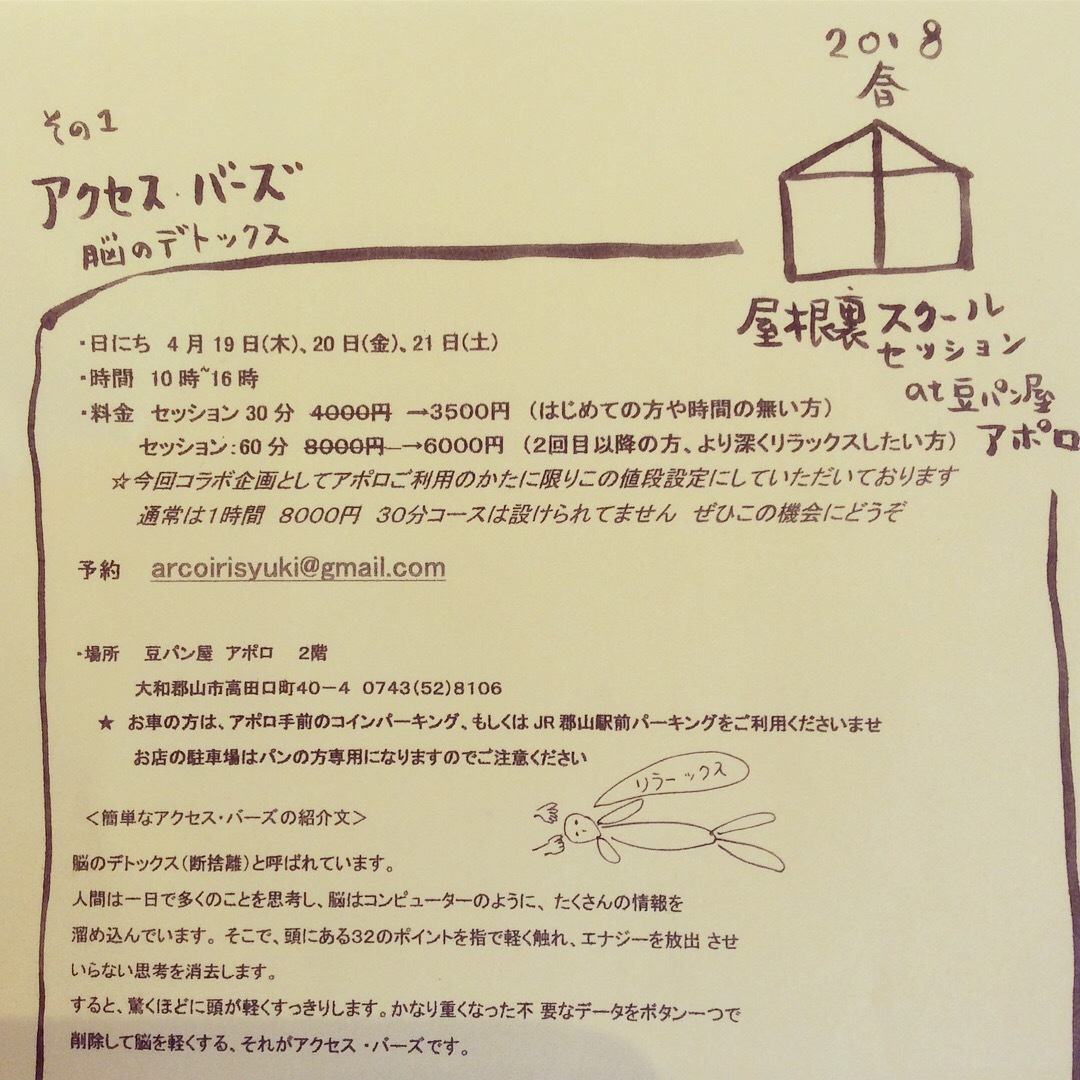 2018
春
その1
アクセス・バーズ
脳のデトックス
屋根裏スクール
セッション
at 豆パン屋
アポロ
・日にち 4月19日(木)、20日(金)、21日(土)
・時間 10時~16時
・料金 セッション30分 4000円 →3500円 (はじめての方や時間の無い方)
セッション:60分 8000円 →6000円 (2回目以降の方、より深くリラックスしたい方)
☆今回コラボ企画としてアポロご利用のかたに限りこの値段設定にしていただいております
通常は1時間 8000円 30分コースは設けられてません ぜひこの機会にどうぞ
予約 arcoirisyuki@gmail.com
・場所 豆パン屋 アポロ 2階
大和郡山市高田口町40-4 0743(52)8106
★ お車の方は、アポロ手前のコインパーキング、もしくはJR郡山駅前パーキングをご利用くださいませ
お店の駐車場はパンの方専用になりますのでご注意ください
リラーックス
<簡単なアクセス・バーズの紹介文>
脳のデトックス(断捨離)と呼ばれています。
人間は一日で多くのことを思考し、脳はコンピューターのように、たくさんの情報を
溜め込んでいます。そこで、頭にある32のポイントを指で軽く触れ、エナジーを放出 させ
いらない思考を消去します。
すると、驚くほどに頭が軽くすっきりします。かなり重くなった不 要なデータをボタン一つで
削除して脳を軽くする、それがアクセス ・バーズです。